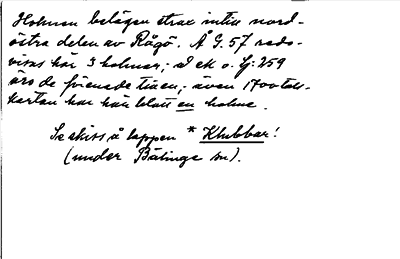 Holmen belägen strax intill nord-
östra delen av Rågö. Å G. 57 redo-
visas här 3 holmar; å ek o. Gj: 259
äro de förenade till en, även 1700tals-
kartan har här blott en holme.
Se skiss å lappen * Klubbar!
(under Bälinge sn).